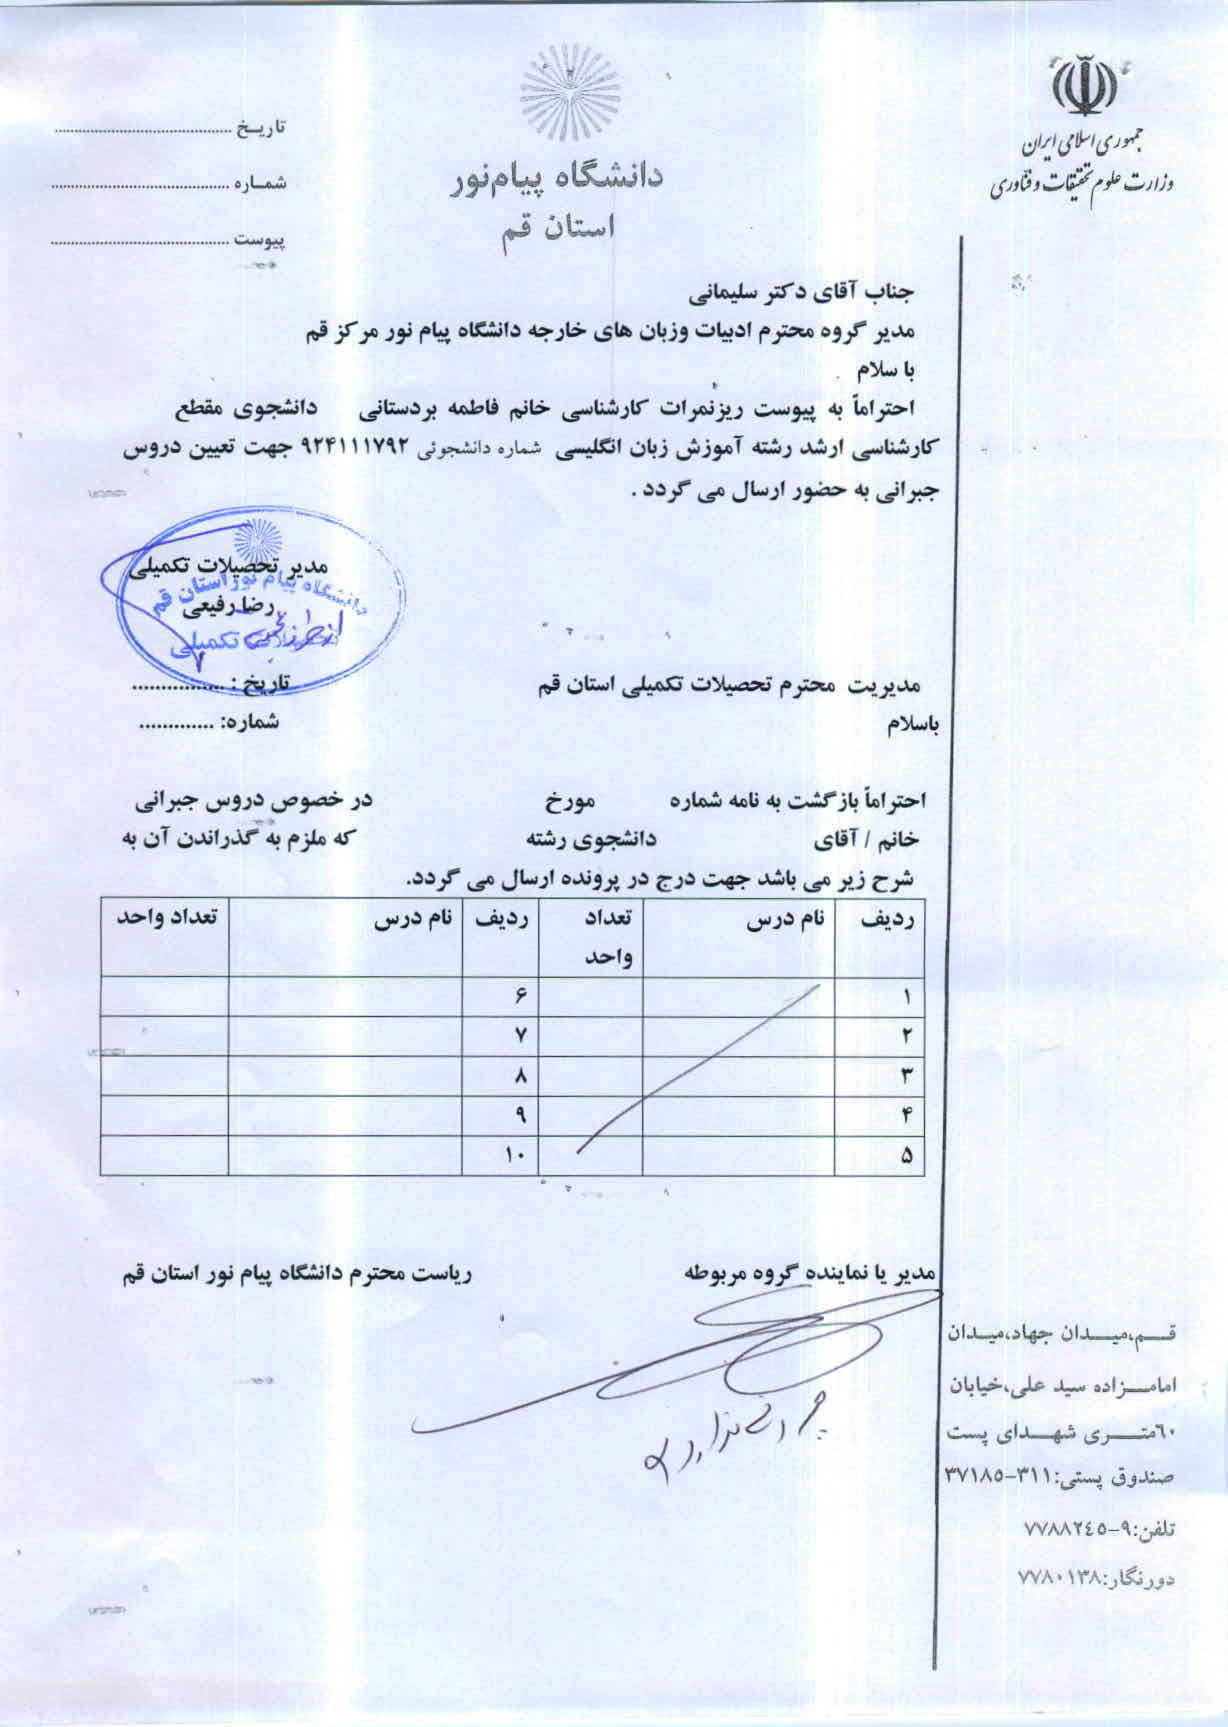 جمهوری اسلامی ایران
وزارت علوم تحقیقات و فناوری
دانشگاه پیام‌نور
استان قم
تاریـخ ......................................
شمـاره ......................................
پیوست ......................................
جناب آقای دکتر سلیمانی
مدیر گروه محترم ادبیات وزبان های خارجه دانشگاه پیام نور مرکز قم
با سلام
احتراماً به پیوست ریزنمرات کارشناسی خانم فاطمه بردستانی دانشجوی مقطع
کارشناسی ارشد رشته آموزش زبان انگلیسی شماره دانشجوئی ۹۲۴۱۱۱۷۹۲ جهت تعیین دروس
جبرانی به حضور ارسال می گردد .
مدیر تحصیلات تکمیلی
دانشگاه پیام نور استان قم
رضا رفیعی
از طرف
تحصیلات تکمیلی
تاریخ : ................
شماره: .............
مدیریت محترم تحصیلات تکمیلی استان قم
باسلام
احتراماً بازگشت به نامه شماره مورخ در خصوص دروس جبرانی
خانم / آقای دانشجوی رشته که ملزم به گذراندن آن به
شرح زیر می باشد جهت درج در پرونده ارسال می گردد.
ردیف نام درس تعداد واحد ردیف نام درس تعداد واحد
۱ ۶
۲ ۷
۳ ۸
۴ ۹
۵ ۱۰
مدیر یا نماینده گروه مربوطه ریاست محترم دانشگاه پیام نور استان قم
قــم،میــدان جهاد،میـدان
امامــزاده سید علی،خیابان
٦٠متــری شهــدای پست
صندوق پستی:۳۱۱-۳۷۱۸۵
تلفن:۹-۷۷۸۸۲٤٥
دورنگار:۷۷۸۰۱۳۸